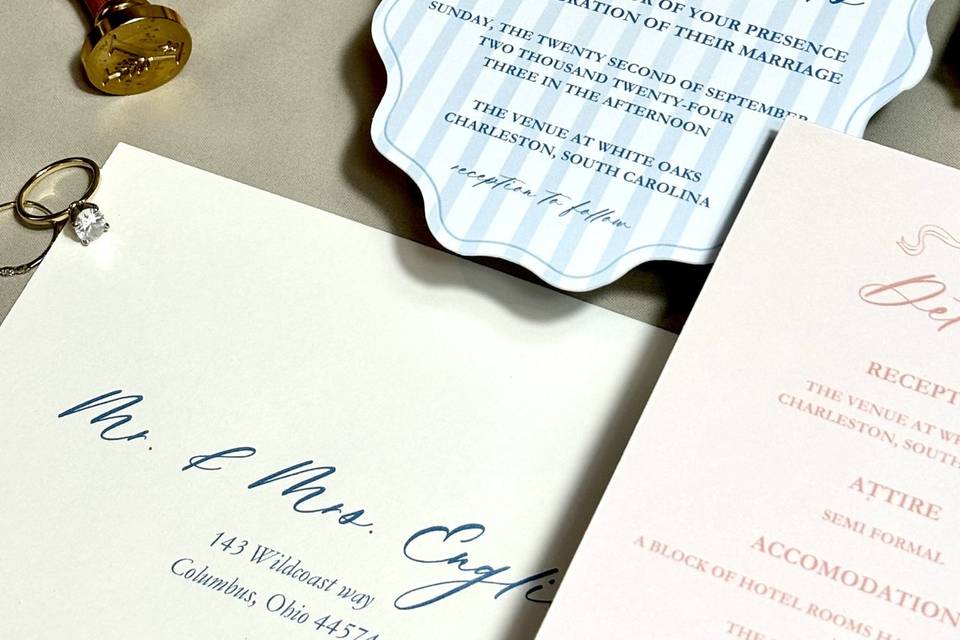 OF YOUR PRESENCE
OF THEIR MARRIAGE
SUNDAY, THE TWENTY SECOND OF SEPTEMBER
TWO THOUSAND TWENTY-FOUR
THREE IN THE AFTERNOON
THE VENUE AT WHITE OAKS
CHARLESTON, SOUTH CAROLINA
reception to follow
Mr. & Mrs. Engli
143 Wildcoast way
Columbus, Ohio 44574
Det
RECEPT
THE VENUE AT
CHARLESTON, SOUTH
ATTIRE
SEMI FORMAL
ACCOMODATION
A BLOCK OF HOTEL ROOMS